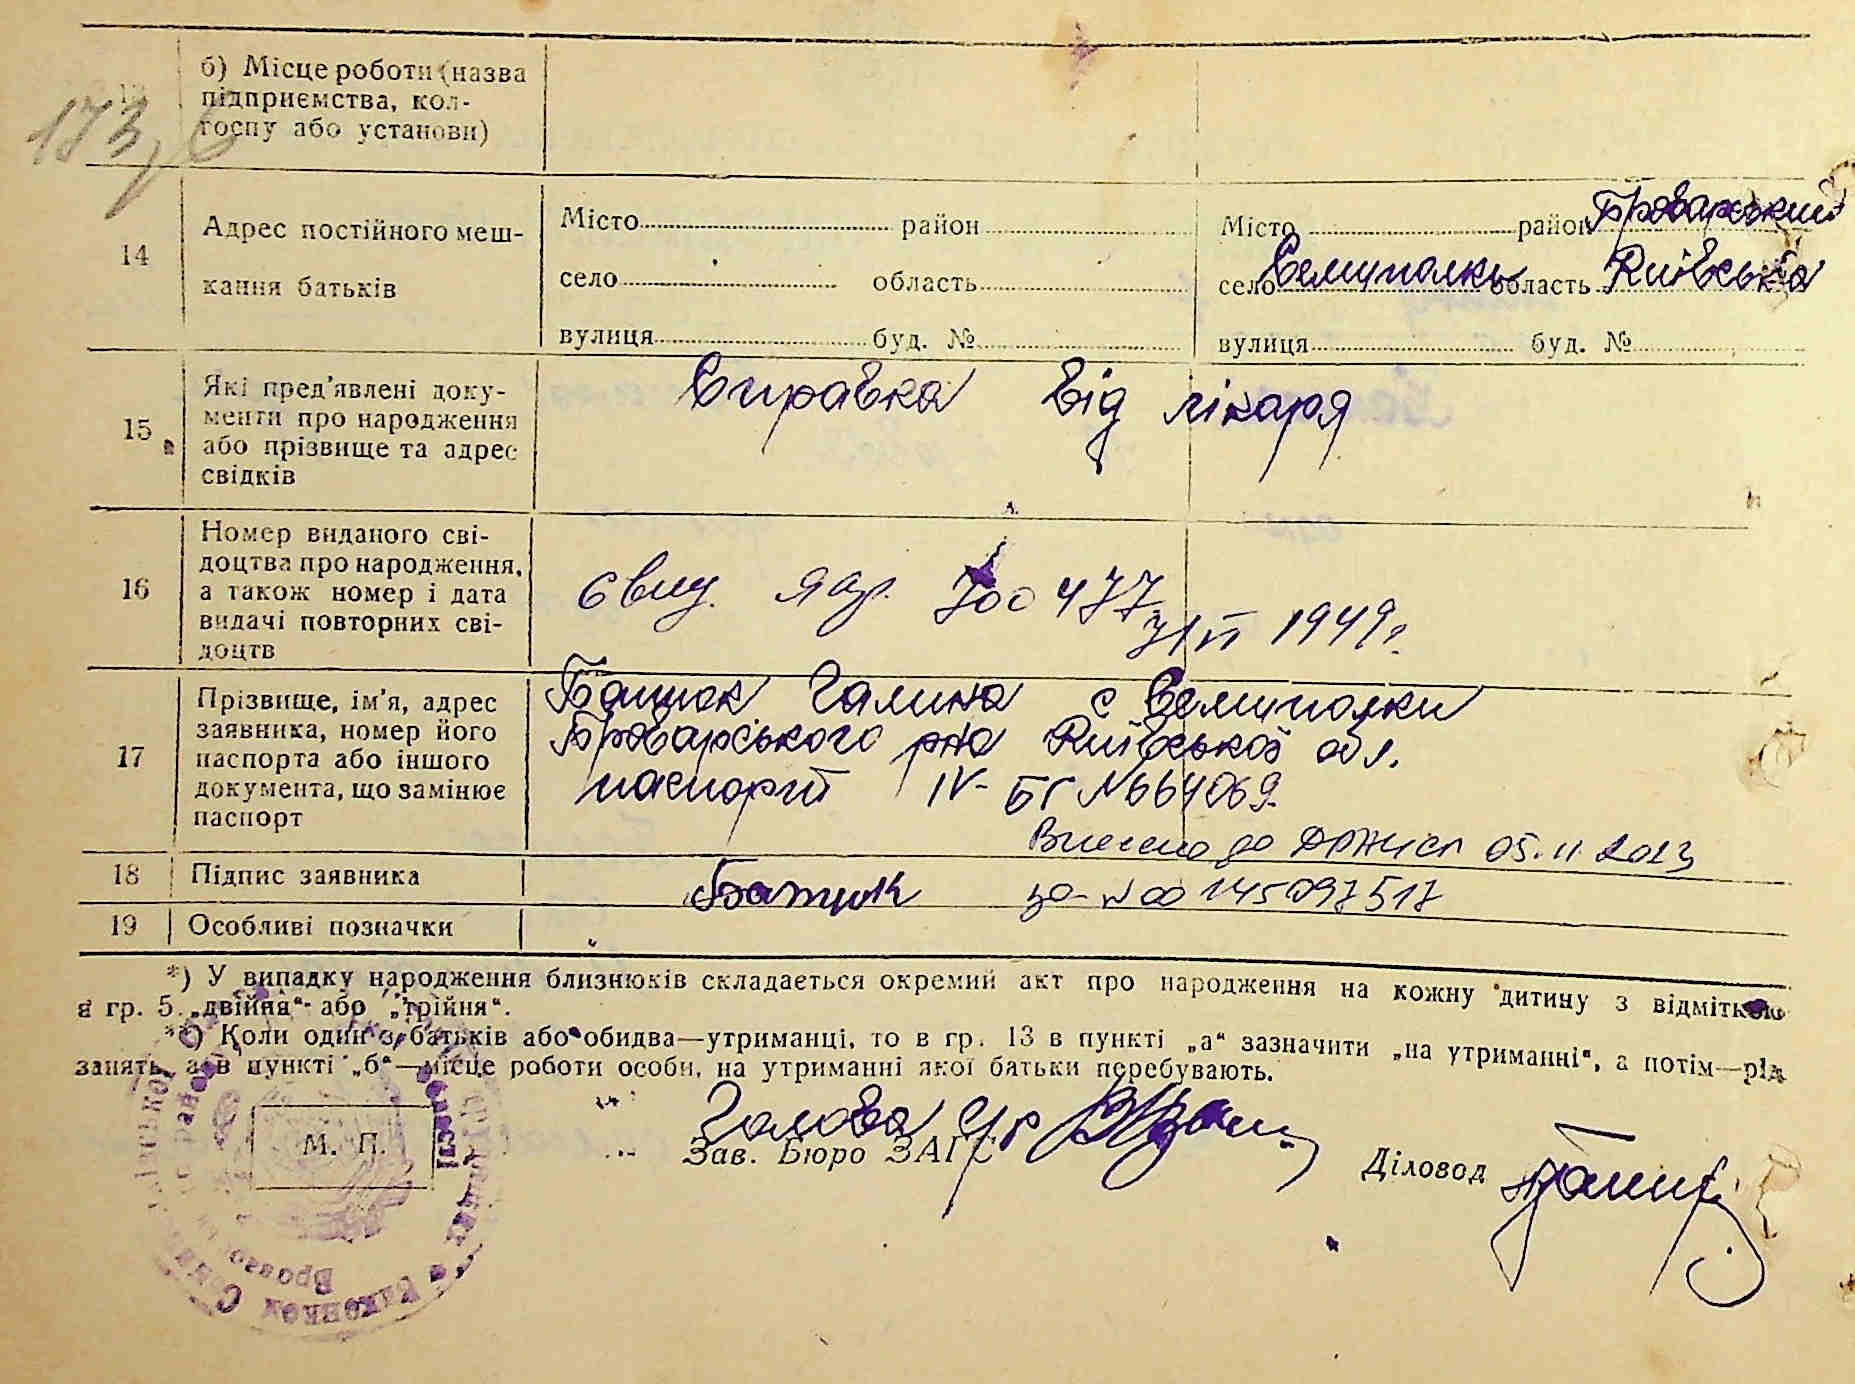 173,
б) Місце роботи (назва
підприємства, кол-
госпу або установи)
14
Адрес постійного меш-
кання батьків
Місто район
село область
вулиця буд. №
Місто район Броварський
село Семиполки область Київська
вулиця буд. №
15
Які пред’явлені доку-
менти про народження
або прізвище та адрес
свідків
Справка від лікаря
16
Номер виданого сві-
доцтва про народження,
а також номер і дата
видачі повторних сві-
доцтв
700477
7/VI 1949г.
17
Прізвище, ім’я, адрес
заявника, номер його
паспорта або іншого
документа, що замінює
паспорт
Галина с Семиполки
Броварського р-на Київської обл.
паспорт IV-БГ №664069.
Внесено до ДРАЦСГ 05.11.2023
за №00145097517
18
Підпис заявника
19
Особливі позначки
*) У випадку народження близнюків складається окремий акт про народження на кожну дитину з відміткою
в гр. 5 „двійня“ або „трійня“.
**) Коли один з батьків або обидва—утриманці, то в гр. 13 в пункті „а“ зазначити „на утриманні“, а потім—рід
занять, а в пункті „б“—місце роботи особи, на утриманні якої батьки перебувають.
М. П.
Голова с/р
Зав. Бюро ЗАГС
Діловод